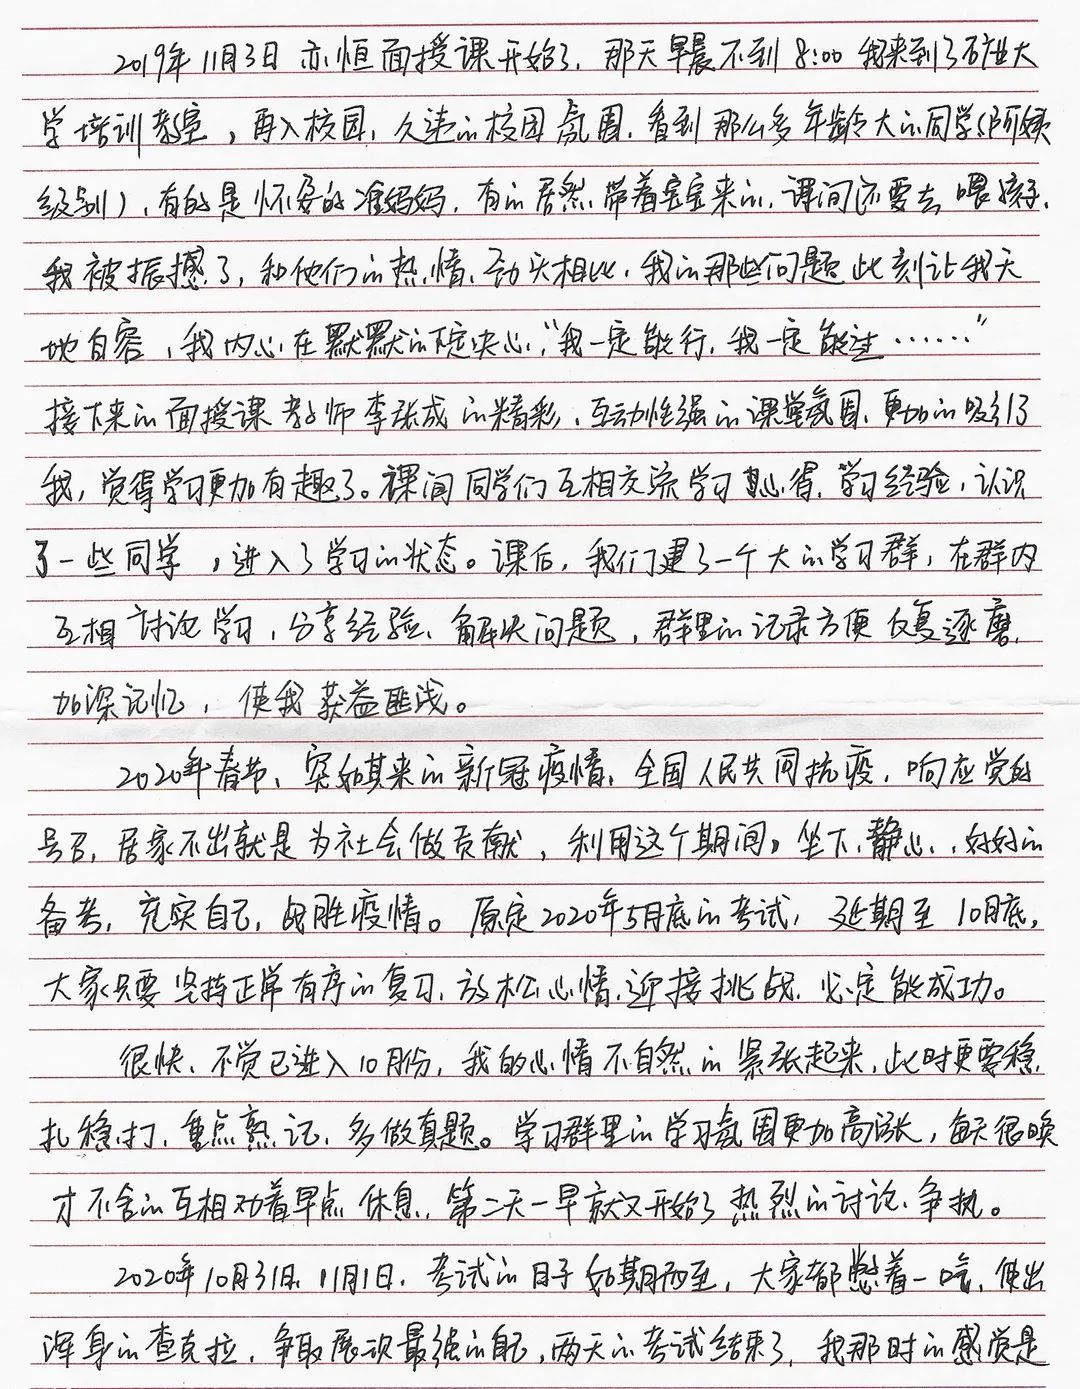 2019年11月3日 亦恒面授课开始了，那天早晨不到8:00 我来到了矿业大
学培训教室，再入校园，久违的校园氛围，看到那么多年龄大的同学（阿姨
级别），有的是怀孕的准妈妈，有的居然带着宝宝来的，课间还要去喂孩子，
我被振撼了，和他们的热情、劲头相比，我的那些问题此刻让我无
地自容，我内心在默默的下定决心，“我一定能行，我一定能过……”
接下来的面授课 教师李张成的精彩、互动性强的课堂氛围，更加的吸引了
我，觉得学习更加有趣了。课间同学们互相交流学习心得、学习经验，认识
了一些同学，进入了学习的状态。课后，我们建了一个大的学习群，在群内
互相讨论学习，分享经验、解决问题，群里的记录方便反复逐磨，
加深记忆，使我获益匪浅。
2020年春节、突如其来的新冠疫情，全国人民共同抗疫，响应党的
号召，居家不出就是为社会做贡献，利用这个期间，坐下、静心、好好的
备考，充实自己，战胜疫情。原定2020年5月底的考试，延期至10月底，
大家只要坚持正常有序的复习，放松心情，迎接挑战，必定能成功。
很快、不觉已进入10月份，我的心情不自然的紧张起来，此时更要稳
扎稳打，重点熟记、多做真题。学习群里的学习氛围更加高涨，每天很晚
才不舍的互相劝着早点休息，第二天一早就又开始了热烈的讨论、争执。
2020年10月31日、11月1日，考试的日子如期而至，大家都憋着一口气，使出
浑身的查克拉，争取展现最强的自己，两天的考试结束了，我那时的感觉是